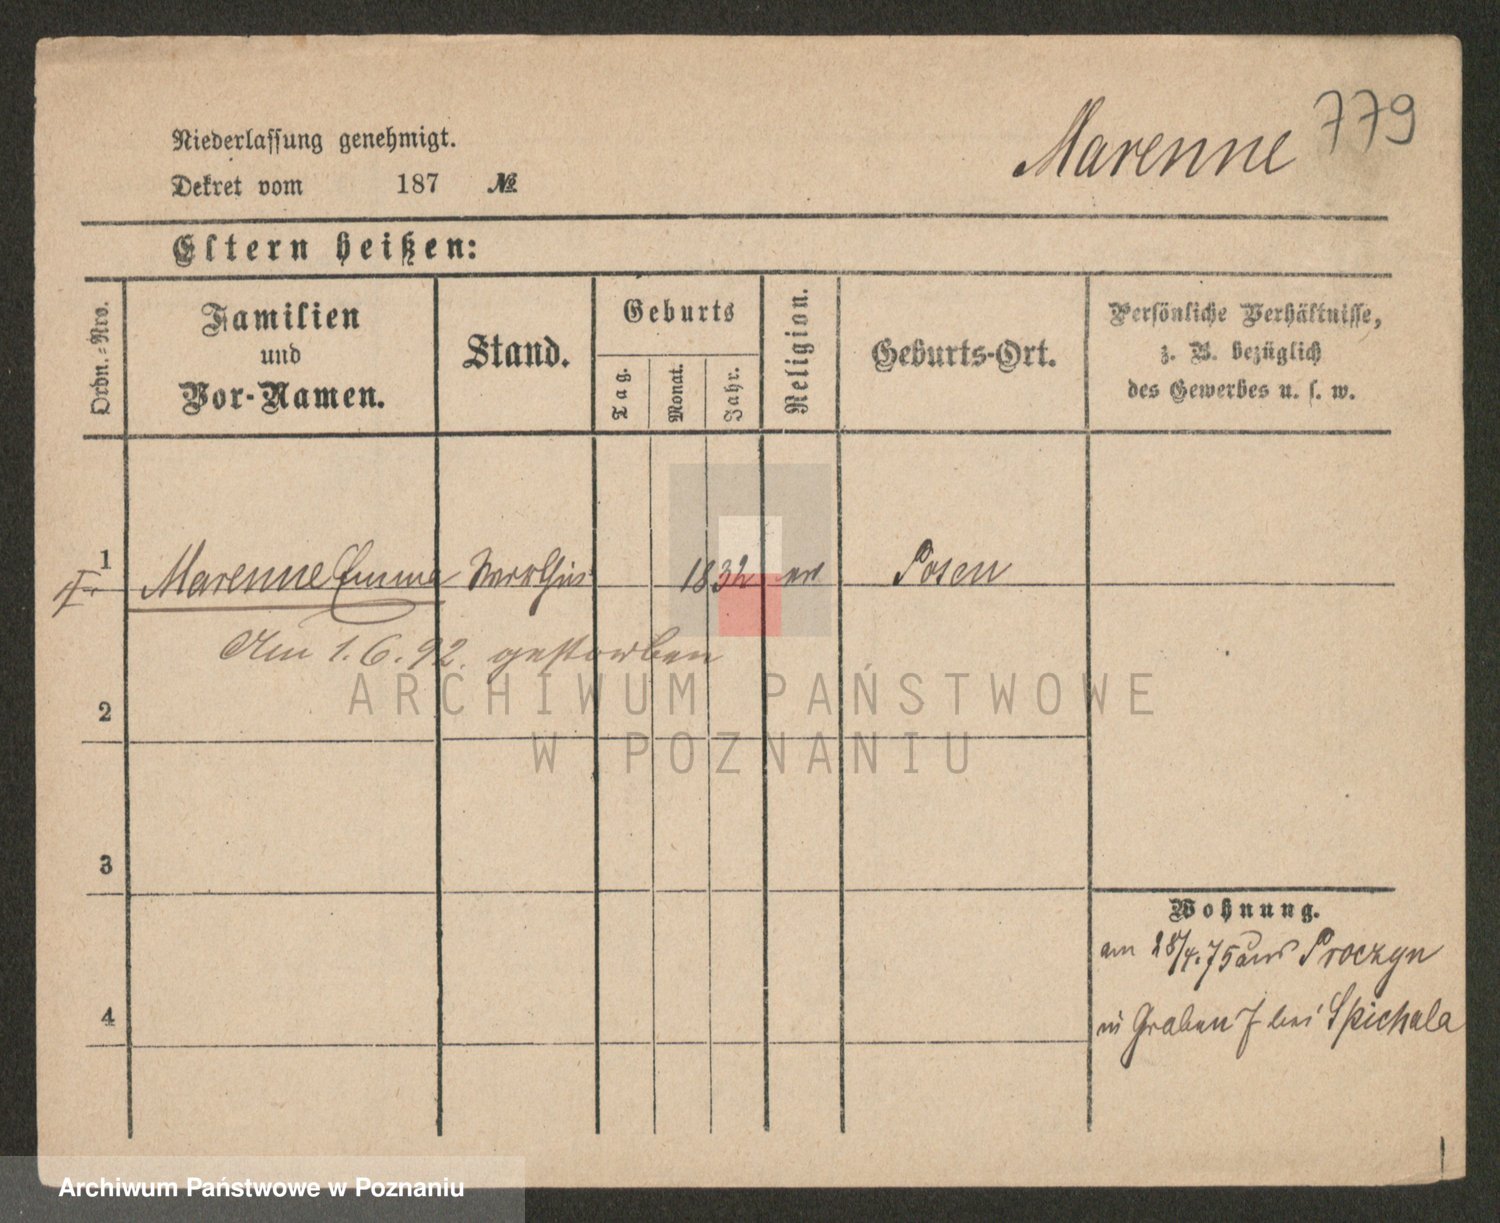 779
Marenne
Niederlassung genehmigt.
Dekret vom 187 №
Eltern heißen:
Ordn.-Nro.
Familien
und
Vor-Namen.
Stand.
Geburts
Tag.
Monat.
Jahr.
Religion.
Geburts-Ort.
Persönliche Verhältnisse,
z. B. bezüglich
des Gewerbes u. s. w.
1 Marenne Emma 1832 ev Posen
I
Am 1.6.92. gestorben
ARCHIWUM PAŃSTWOWE
2
W POZNANIU
3
Wohnung.
am 28/4. 75 aus Proczyn
4
in Graben 7 bei Spichala
Archiwum Państwowe w Poznaniu